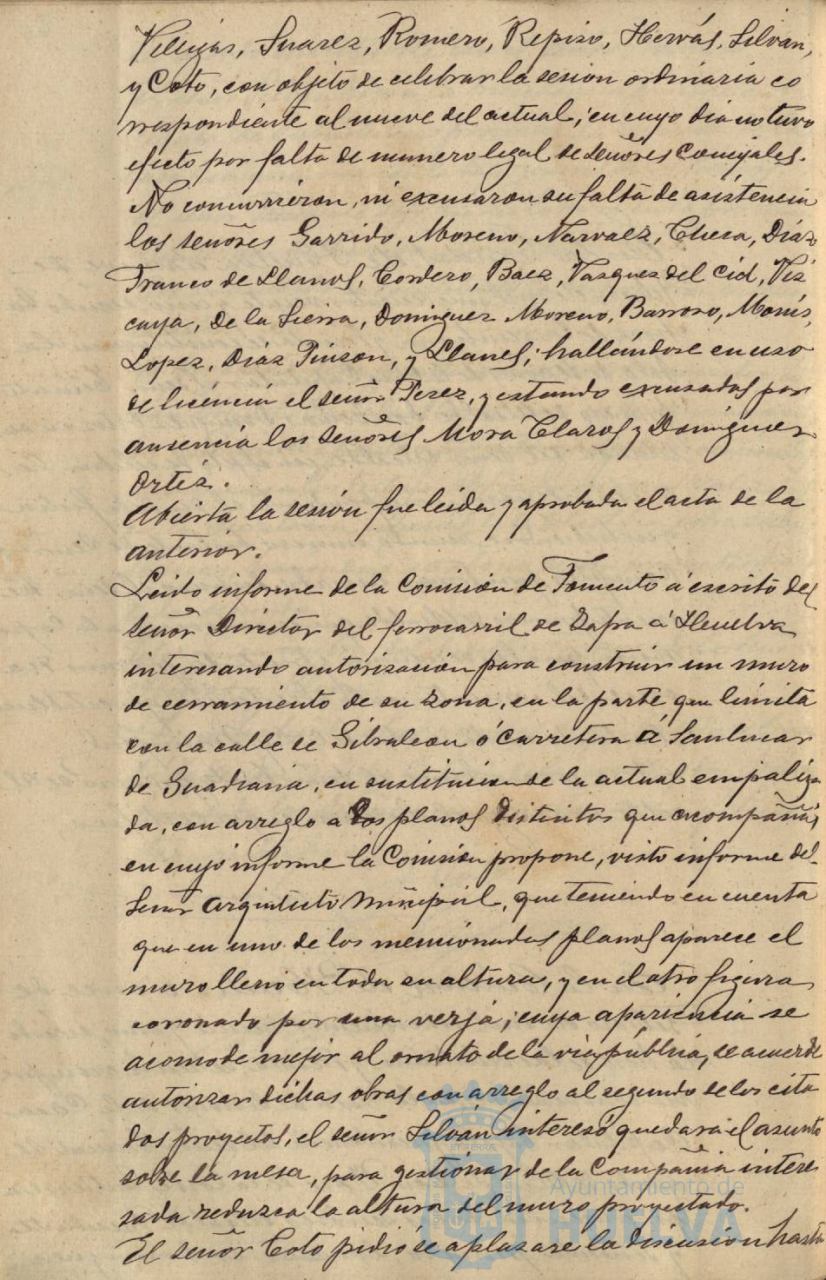 Villegas, Suarez, Romero, Repiso, Hervás, Silván,
y Coto, con objeto de celebrar la sesión ordinaria co
rrespondiente al nueve del actual, en cuyo dia no tuvo
efecto por falta de numero legal de señores Concejales.
No concurrieron, ni excusaron su falta de asistencia
los señores Garrido, Moreno, Narvaez, Checa, Diáz
Franco de Llanos, Cordero, Baez, Vasquez del Cid, Viz
caya, de la Sierra, Dominguez Moreno, Barroso, Monís,
Lopez, Diáz Pinzon, y Llanes; hallándose en uso
de licéncia el señor Perez, y estando excusados por
ausencia los señores Mora Claros y Dominguez
Ortiz.
Abierta la sesión fue leida y aprobada el acta de la
anterior.
Leido informe de la Comisión de Fomento á escrito del
señor Director del ferrocarril de Zafra á Huelva
interesando autorización para construir un muro
de cerramiento de su zona, en la parte que limita
con la calle de Gibraleon ó Carretera á Sanlucar
de Guadiana, en sustitucion de la actual empaliza
da, con arreglo a los planos distintos que acompañaᵃ,
en cuyo informe la Comision propone, visto informe del
Señor Arquitecto Municipal, que teniendo en cuenta
que en uno de los mencionados planos aparece el
muro lleno en toda su altura, y en el otro figura
coronado por una verja, cuya apariencia se
acomode mejor al ornato de la via pública, se acuerde
autorizar dichas obras con arreglo al segundo de los cita
dos proyectos, el señor Silván interesó quedara el asunto
sobre la mesa, para gestionar de la Compañia intere
sada reduzca la altura del muro proyectado.
El señor Coto pidió se aplazare la discusión hasta
Ayuntamiento de
HUELVA